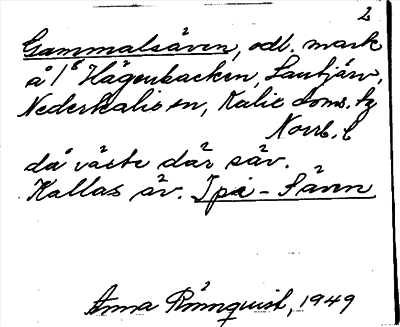 2
Gammalsäven, odl. mark
å 1⁸ Hägerbacken, Lantjärv,
Nederkalix sn, Kalix doms. tg
Norrb. l
då växte där säv.
Kallas äv. Ipi-Säven
Anna Rönnquist, 1949